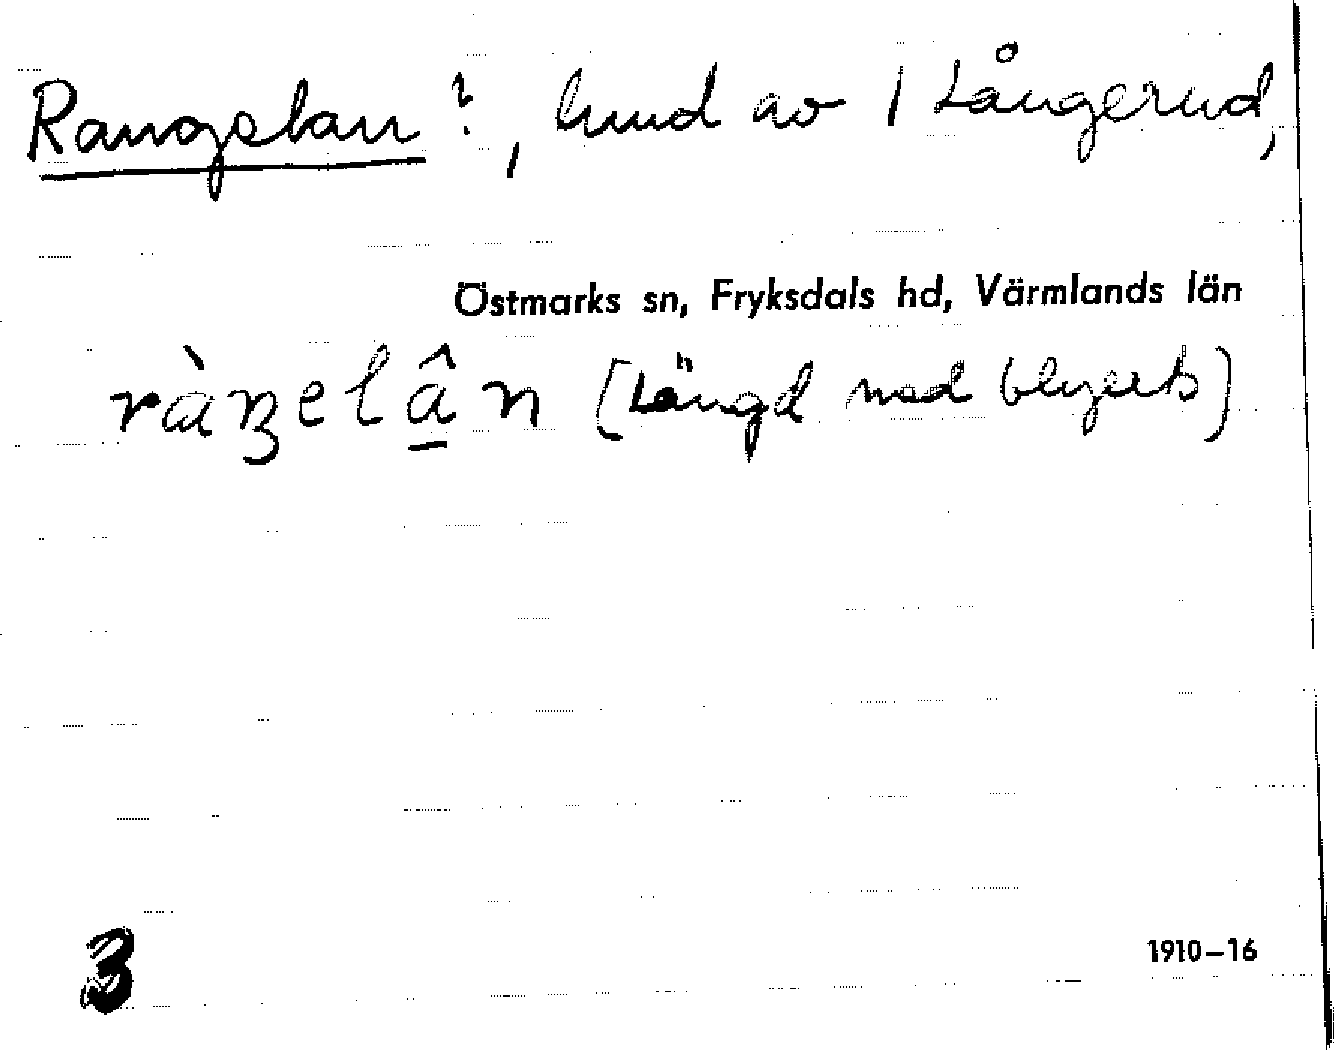 Rangelan ?, hund av 1 Långerud,
Östmarks sn, Fryksdals hd, Värmlands län
ràŋelâ̱n [Längd med blyerts]
3
1910–16